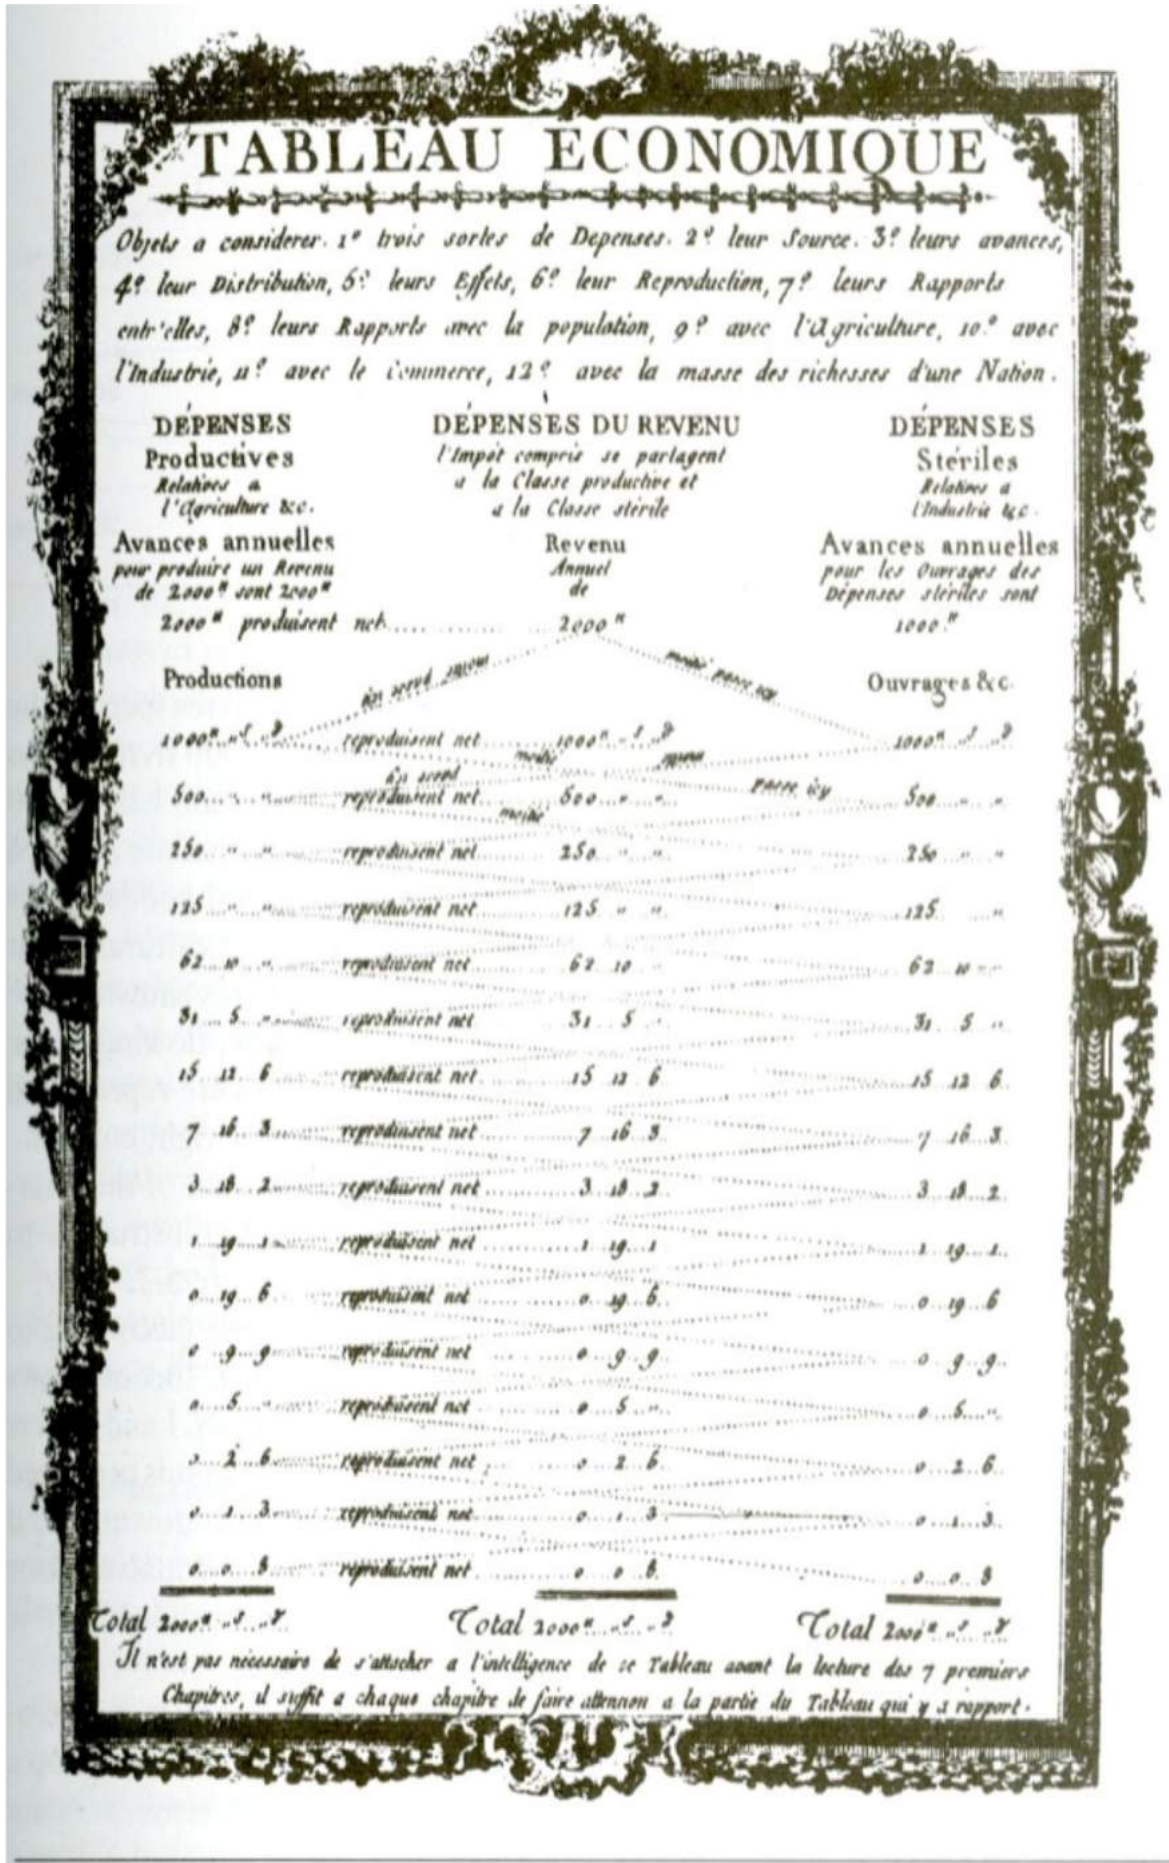 TABLEAU ECONOMIQUE
Objets a considerer. 1º trois sortes de Depenses. 2º leur Source. 3º leurs avances,
4º leur Distribution, 5º leurs Effets, 6º leur Reproduction, 7º leurs Rapports
entr'elles, 8º leurs Rapports avec la population, 9º avec l'Agriculture, 10º avec
l'Industrie, 11º avec le Commerce, 12º avec la masse des richesses d'une Nation.
DÉPENSES DÉPENSES DU REVENU DÉPENSES
Productives l'Impôt compris se partagent Stériles
Relatives a a la Classe productive et Relatives a
l'Agriculture &c. a la Classe stérile l'Industrie &c.
Avances annuelles Revenu Avances annuelles
pour produire un Revenu Annuel pour les Ouvrages des
de 2000ᴴ sont 2000ᴴ de Dépenses stériles sont
2000ᴴ produisent net 2000ᴴ 1000ᴴ
moitié passe icy
Productions Ouvrages &c.
1000ᴴ „ ˢ „ ᵈ reproduisent net 1000ᴴ „ ˢ „ ᵈ 1000ᴴ „ ˢ „ ᵈ
moitié
passe icy
500 „ „ reproduisent net 500 „ „ 500 „ „
moitié
250 „ „ reproduisent net 250 „ „ 250 „ „
125 „ „ reproduisent net 125 „ „ 125 „
62 10 „ reproduisent net 62 10 „ 62 10 „
31 5 „ reproduisent net 31 5 „ 31 5 „
15 12 6 reproduisent net 15 12 6 15 12 6
7 16 3 reproduisent net 7 16 3 7 16 3
3 18 2 reproduisent net 3 18 2 3 18 2
1 19 1 reproduisent net 1 19 1 1 19 1
0 19 6 reproduisent net 0 19 6 0 19 6
0 9 9 reproduisent net 0 9 9 0 9 9
0 5 „ reproduisent net 0 5 „ 0 5 „
0 2 6 reproduisent net 0 2 6 0 2 6
0 1 3 reproduisent net 0 1 3 0 1 3
0 0 8 reproduisent net 0 0 8 0 0 8
Total 2000ᴴ „ ˢ „ ᵈ Total 2000ᴴ „ ˢ „ ᵈ Total 2000ᴴ „ ˢ „ ᵈ
Il n'est pas nécessaire de s'attacher a l'intelligence de ce Tableau avant la lecture des 7 premiers
Chapitres, il suffit a chaque chapitre de faire attention a la partie du Tableau qui y a rapport.